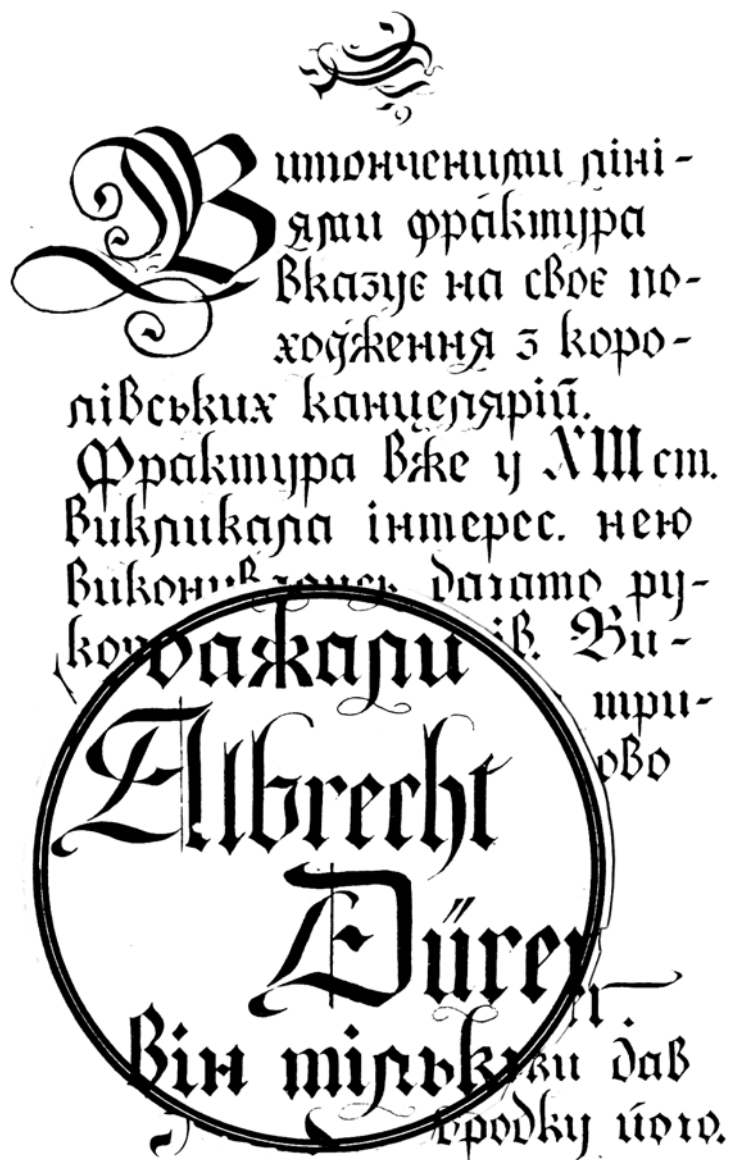 Витонченими ліні-
ями фрактура
вказує на своє по-
ходження з коро-
лівських канцелярій.
Фрактура вже у XIII ст.
викликала інтерес. нею
виконувались багато ру-
ів. Ви-
бажали
три-
ово
Albrecht
Dürer
він тільки дав
його.